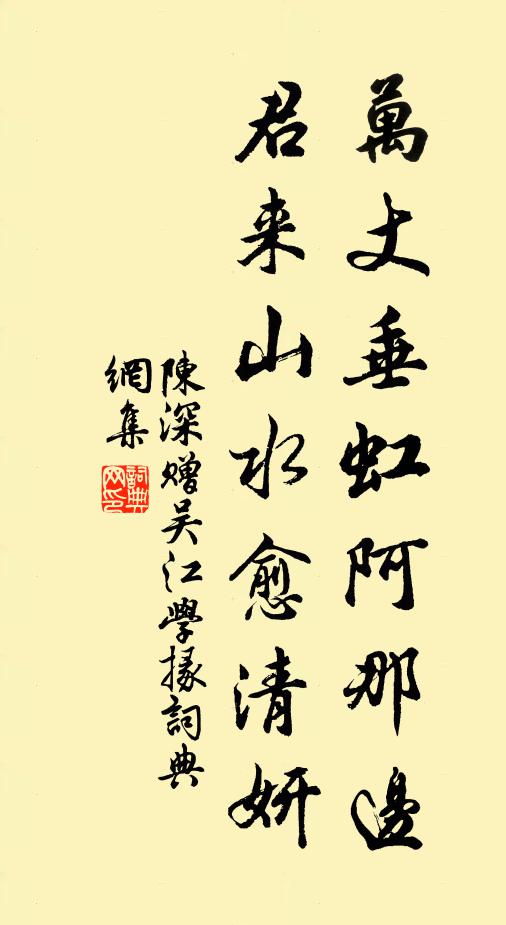 萬丈垂虹阿那邊
君来山水愈清妍
陳深贈吴江學掾詞典
網集
詞典網印